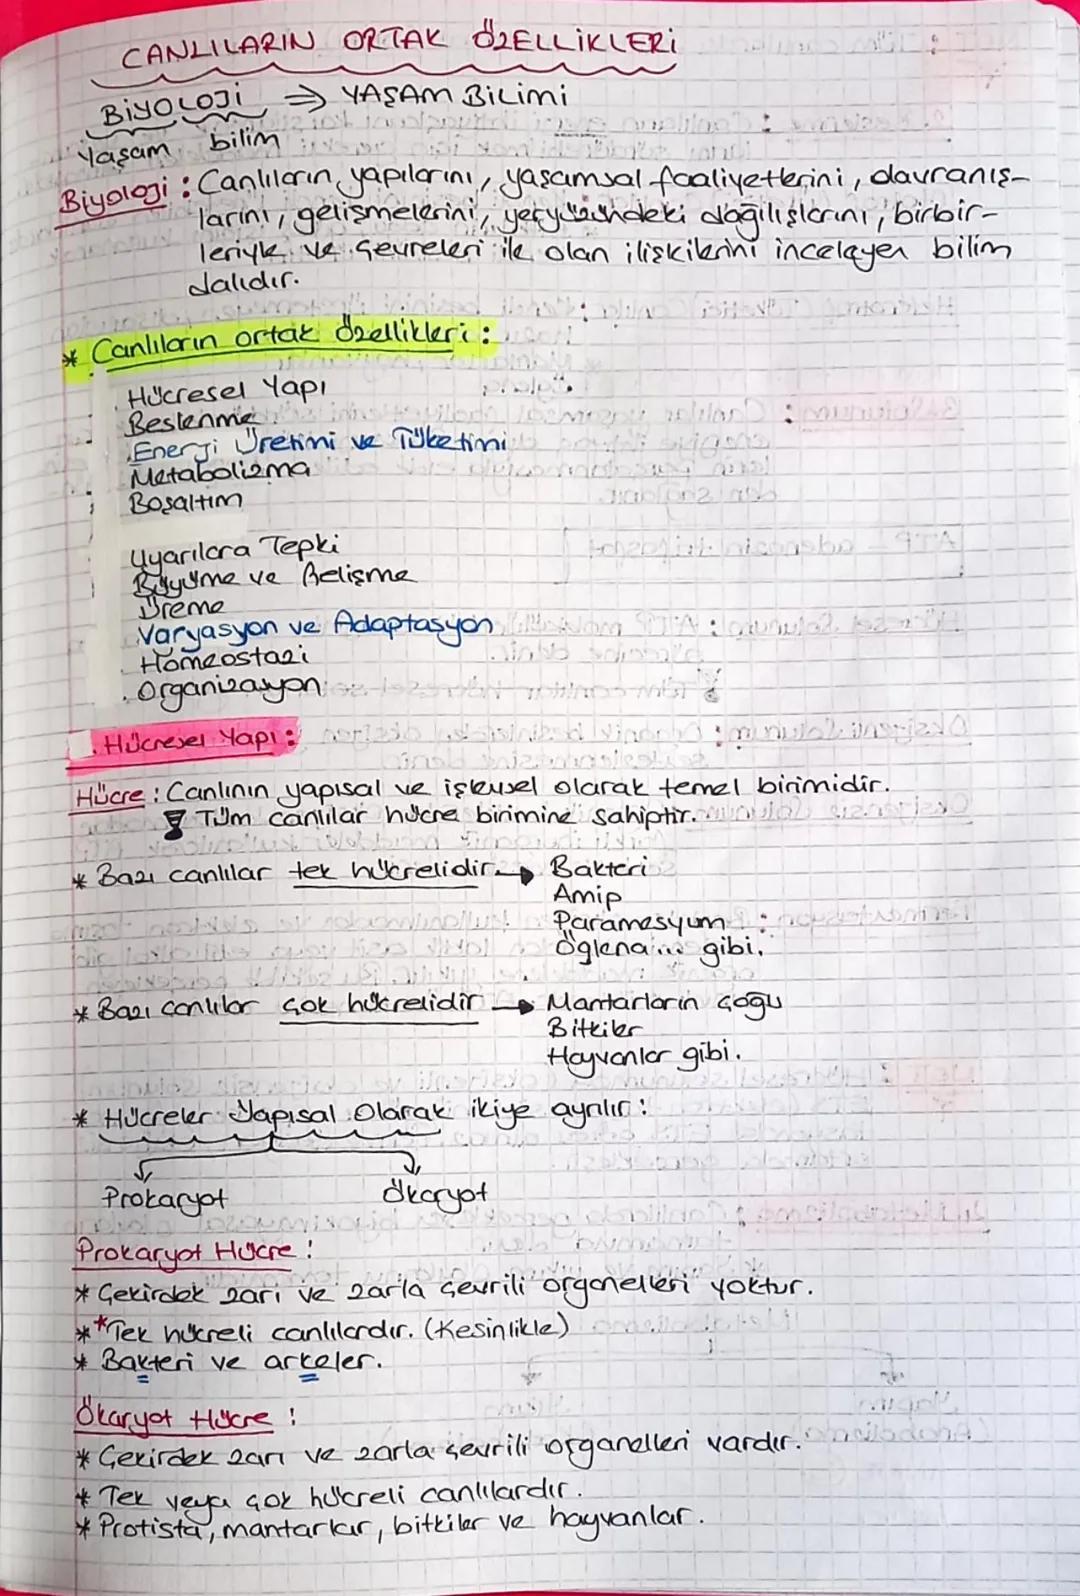 CANLILARIN ORTAK ÖZELLİKLERİ
BİYOLOJİ ⇒ YAŞAM BİLİMİ
Yaşam bilim
Biyologi : Canlıların yapılarını, yaşamsal faaliyetlerini, davranış-
larını, gelişmelerini, yeryüzündeki dağılışlarını, birbir-
leriyle ve çevreleri ile olan ilişkilerini inceleyen bilim
dalıdır.
* Canlıların ortak özellikleri :
. Hücresel Yapı
Beslenme
. Energi Üretimi ve Tüketimi
Metabolizma
Boşaltım
Uyarılara Tepki
Büyüme ve Gelişme
Üreme
Varyasyon ve Adaptasyon
Homeostazi
. Organizasyon
. Hücresel Yapı :
Hücre : Canlının yapısal ve işlevsel olarak temel birimidir.
Tüm canlılar hücre birimine sahiptir.
* Bazı canlılar tek hücrelidir. → Bakteri
Amip
Paramesyum
Öglena... gibi.
* Bazı canlılar çok hücrelidir → Mantarların çoğu
Bitkiler
Hayvanlar gibi.
* Hücreler Yapısal Olarak ikiye ayrılır :
Prokaryot Ökaryot
Prokaryot Hücre :
* Çekirdek zarı ve zarla çevrili organelleri yoktur.
** Tek hücreli canlılardır. (Kesinlikle)
* Bakteri ve arkeler.
Ökaryot Hücre :
* Çekirdek zarı ve zarla çevrili organelleri vardır.
* Tek veya çok hücreli canlılardır.
* Protista, mantarlar, bitkiler ve hayvanlar.